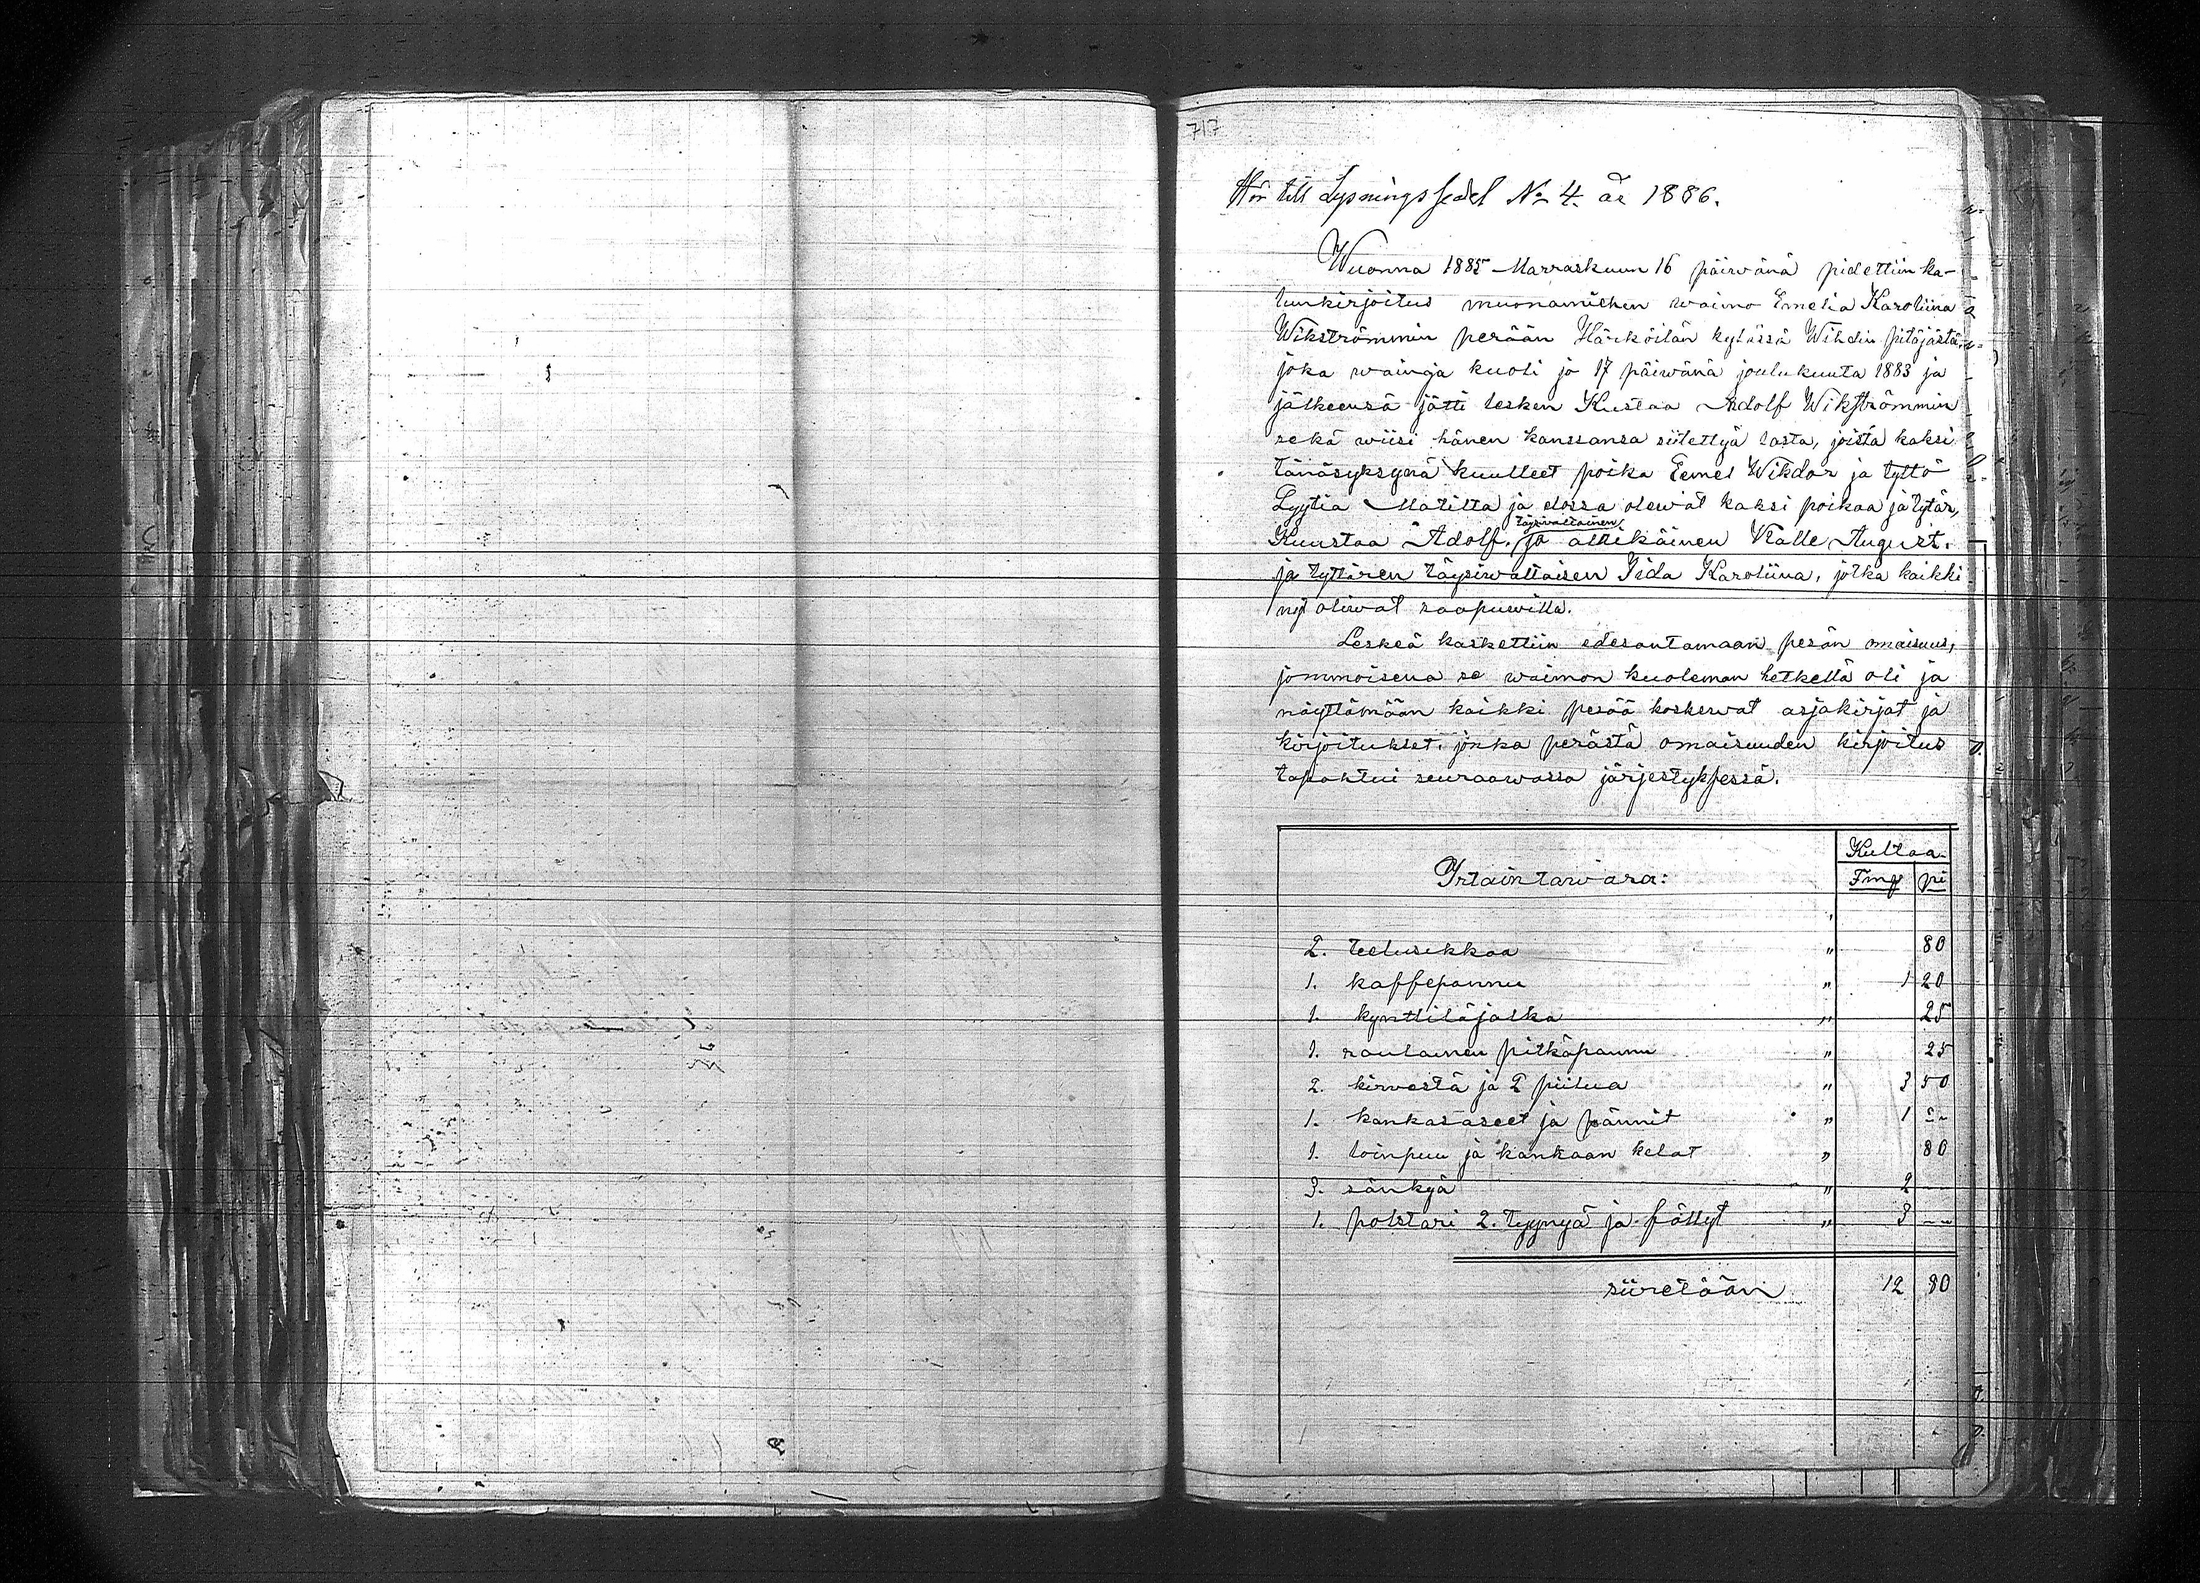 717
Hör till Lysningssedel No 4. år 1886.
Wuonna 1885 Marraskuun 16 päiwänä pidettiin ka-
lunkirjoitus muonamiehen waimo Emelia Karoliina
Wikströmmin perään Härköilän kylässä Wihdin pitäjästä,
joka waimja kuoli jo 17 päiwänä joulukuuta 1883 ja
jälkeensä jätti lesken Kustaa Adolf Wikströmmin
sekä wiisi hänen kanssansa siitettyä lasta, joista kaksi
tänäsyksynä kuolleet poika Eemel Wihdor ja tyttö
Lyytia Matilta ja elossa olewat kaksi poikaa ja tytär,
täysivaltainen
Kuustaa Adolf. ja alaikäinen Kalle August.
ja tyttären täysiwaltaisen Iida Karoliina, jotka kaikki
nyt oliwat saapuwilla.
Leskeä kaskettiin edesantamaan pesän omaisuus,
jommoisena se waimon kuoleman hetkellä oli ja
näyttämään kaikki pesää koskewat asjakirjat ja
kirjoitukset, jonka perästä omaisuuden kirjoitus
tapahtui seuraawassa järjestyksessä.
Kultaa
Irtaintawara: Fmg pi
2. teelusikkaa " 80
1. kaffepannu " 1 20
1. kynttiläjalka " 25
1. rautainen pitkäpannu " 25
2. kirvestä ja 2 piilua " 3 50
1. kankasaseet ja pännit " 1 --
1. loinpuu ja kankaan kelat " 80
3. sänkyä " 2 --
1. polstari 2. tyynyä ja fällyt " 3 --
siiretään 12 80